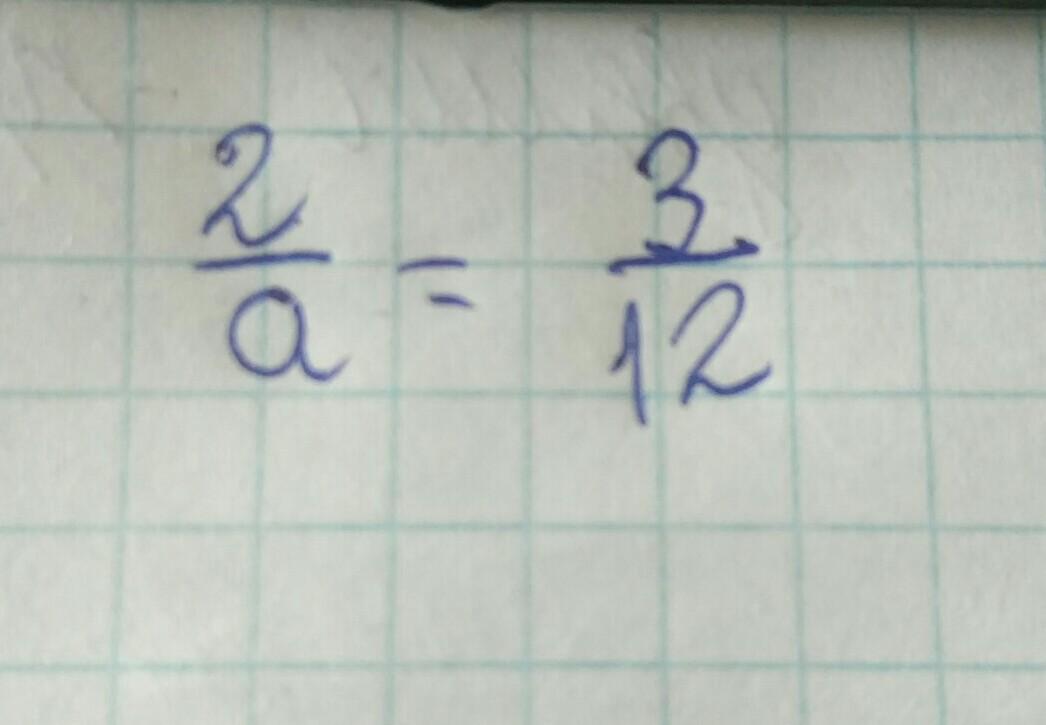 2/a = 3/12